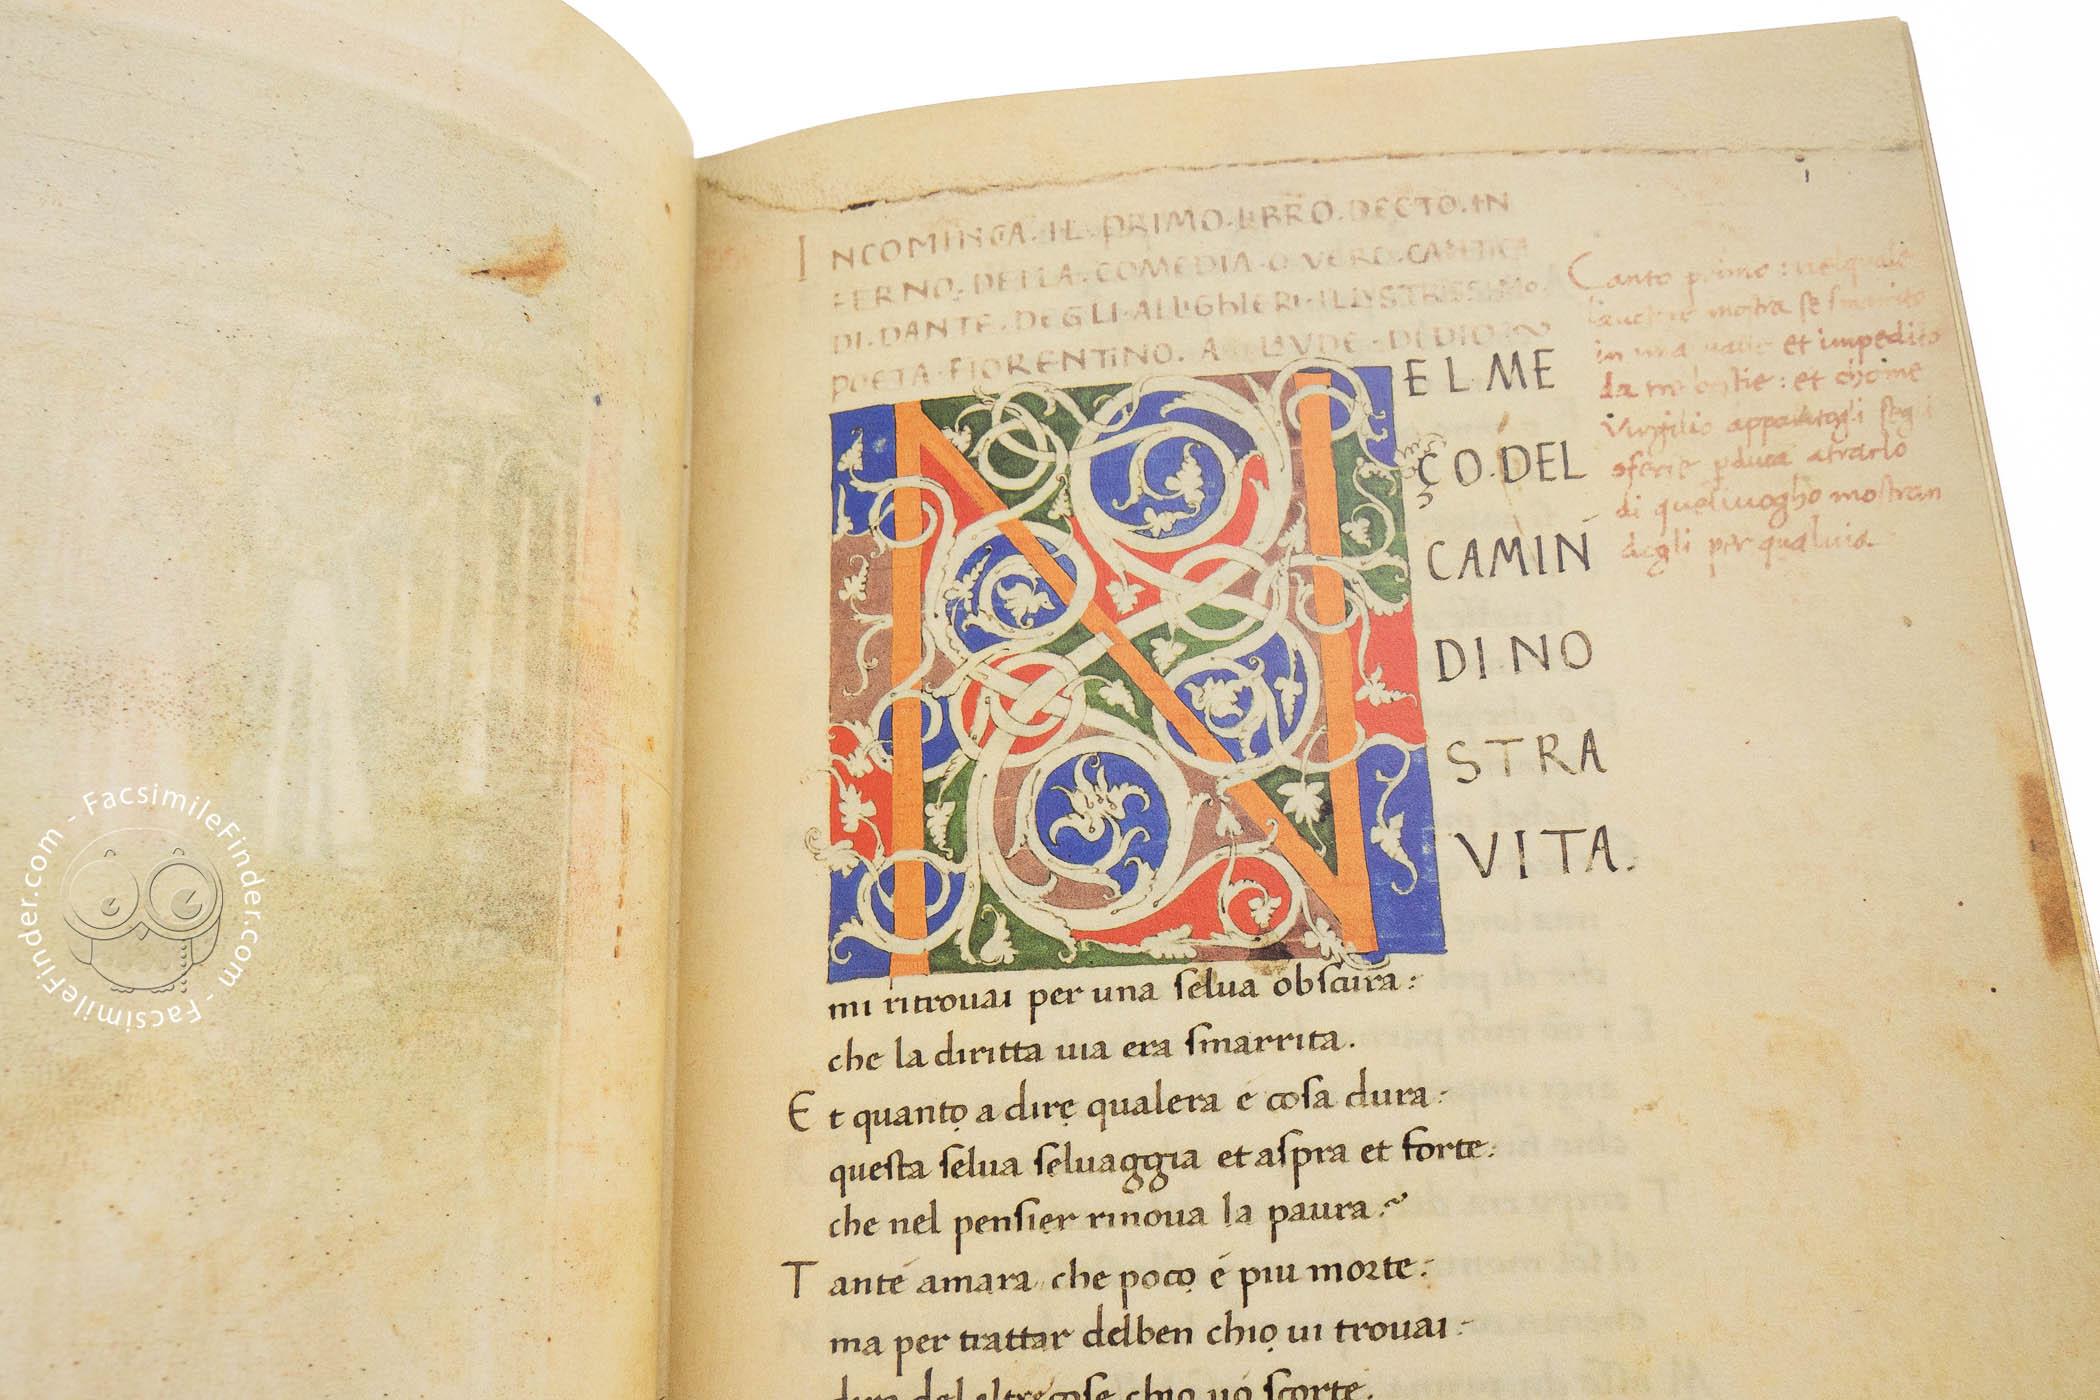 INCOMINCA·IL·PRIMO·LIBRO·DECTO·IN
FERNO·DELLA·COMEDIA·O VERO·CANTICA
DI·DANTE·DEGLI·ALLIGHIERI·ILLVSTRISSIMO·
POETA·FIORENTINO. A LAVDE·DI DIO
NEL ME
ÇO·DEL
CAMIN
DI NO
STRA
VITA.
mi ritrouai per una selua obscura:
che la diritta uia era smarrita.
Et quanto a dire qualera é cosa dura:
questa selua seluaggia et aspra et forte:
che nel pensier rinoua la paura:
Tanté amara che poco é piu morte:
ma per trattar delben chio ui trouai:
Canto primo: nelquale
lauctore mostra se smarito
in una ualle et impedito
da tre bestie: et chome
Virgilio
di quelluogho mostran
degli per qualuia.
FacsimileFinder.com - FacsimileFinder.com -